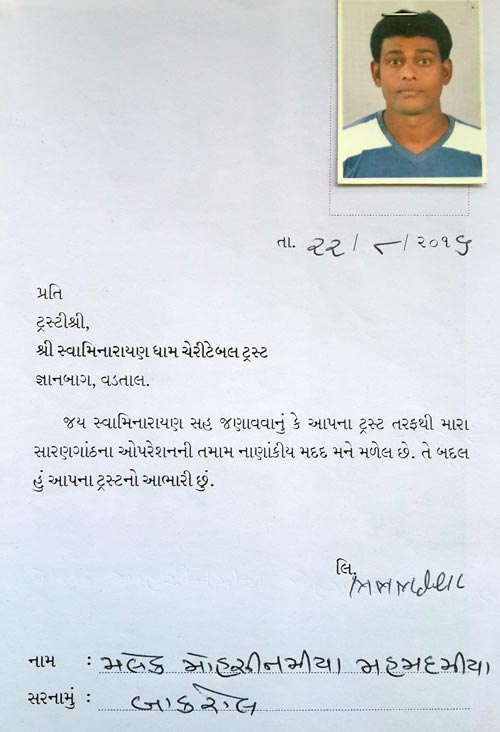 તા. ૨૨/૮/૨૦૧૬
પ્રતિ
ટ્રસ્ટીશ્રી,
શ્રી સ્વામિનારાયણ ધામ ચેરીટેબલ ટ્રસ્ટ
જ્ઞાનબાગ, વડતાલ.
જય સ્વામિનારાયણ સહ જણાવવાનું કે આપના ટ્રસ્ટ તરફથી મારા
સારણગાંઠના ઓપરેશનની તમામ નાણાંકીય મદદ મને મળેલ છે. તે બદલ
હું આપના ટ્રસ્ટનો આભારી છું.
લિ.
નામ : મલેક મોહસીનમીયા મહમદમીયા
સરનામું : બાકરોલ